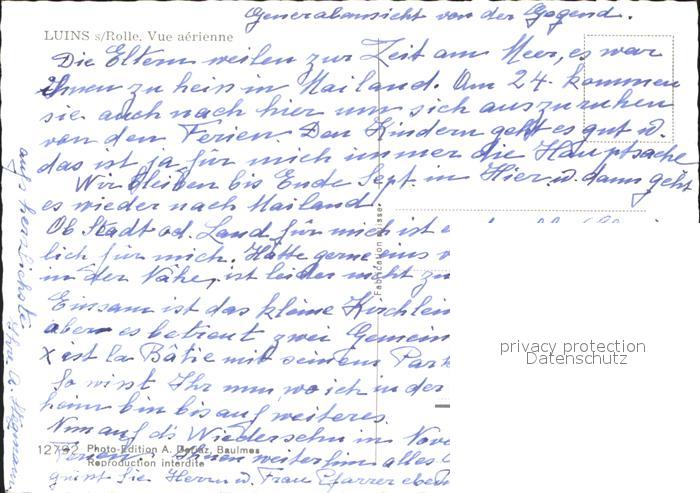 Generalansicht von der Gegend.
LUINS s/Rolle. Vue aérienne
Die Eltern weilen zur Zeit am Meer, es war
ihnen zu heiss in Mailand. Am 24. kommen
sie auch nach hier um sich auszuruhen
von den Ferien. Den Kindern geht es gut u.
das ist ja für mich immer die Hauptsache
Wir bleiben bis Ende Sept. in Hier u. dann geht
es wieder nach Mailand.
Ob Stadt od. Land für mich ist e
lich für mich. Hätte gerne eins
in der Nähe, ist leider nicht zu
Einsam ist das kleine Kirchlein
aber es betreut zwei Gemein
X ist la Bâtie mit seinem Park
So wisst Ihr nun, wo ich in der
heim bin bis auf weiteres.
Nun auf ds Wiedersehn in Nove
12792 Photo-Edition A. Baulmes
Reproduction interdite
Ihnen weiterhin alles
grüsst Sie Herrn u. Frau Pfarrer eben
aufs herzlichste
Ihre A.
Fabrication suisse
privacy protection
Datenschutz